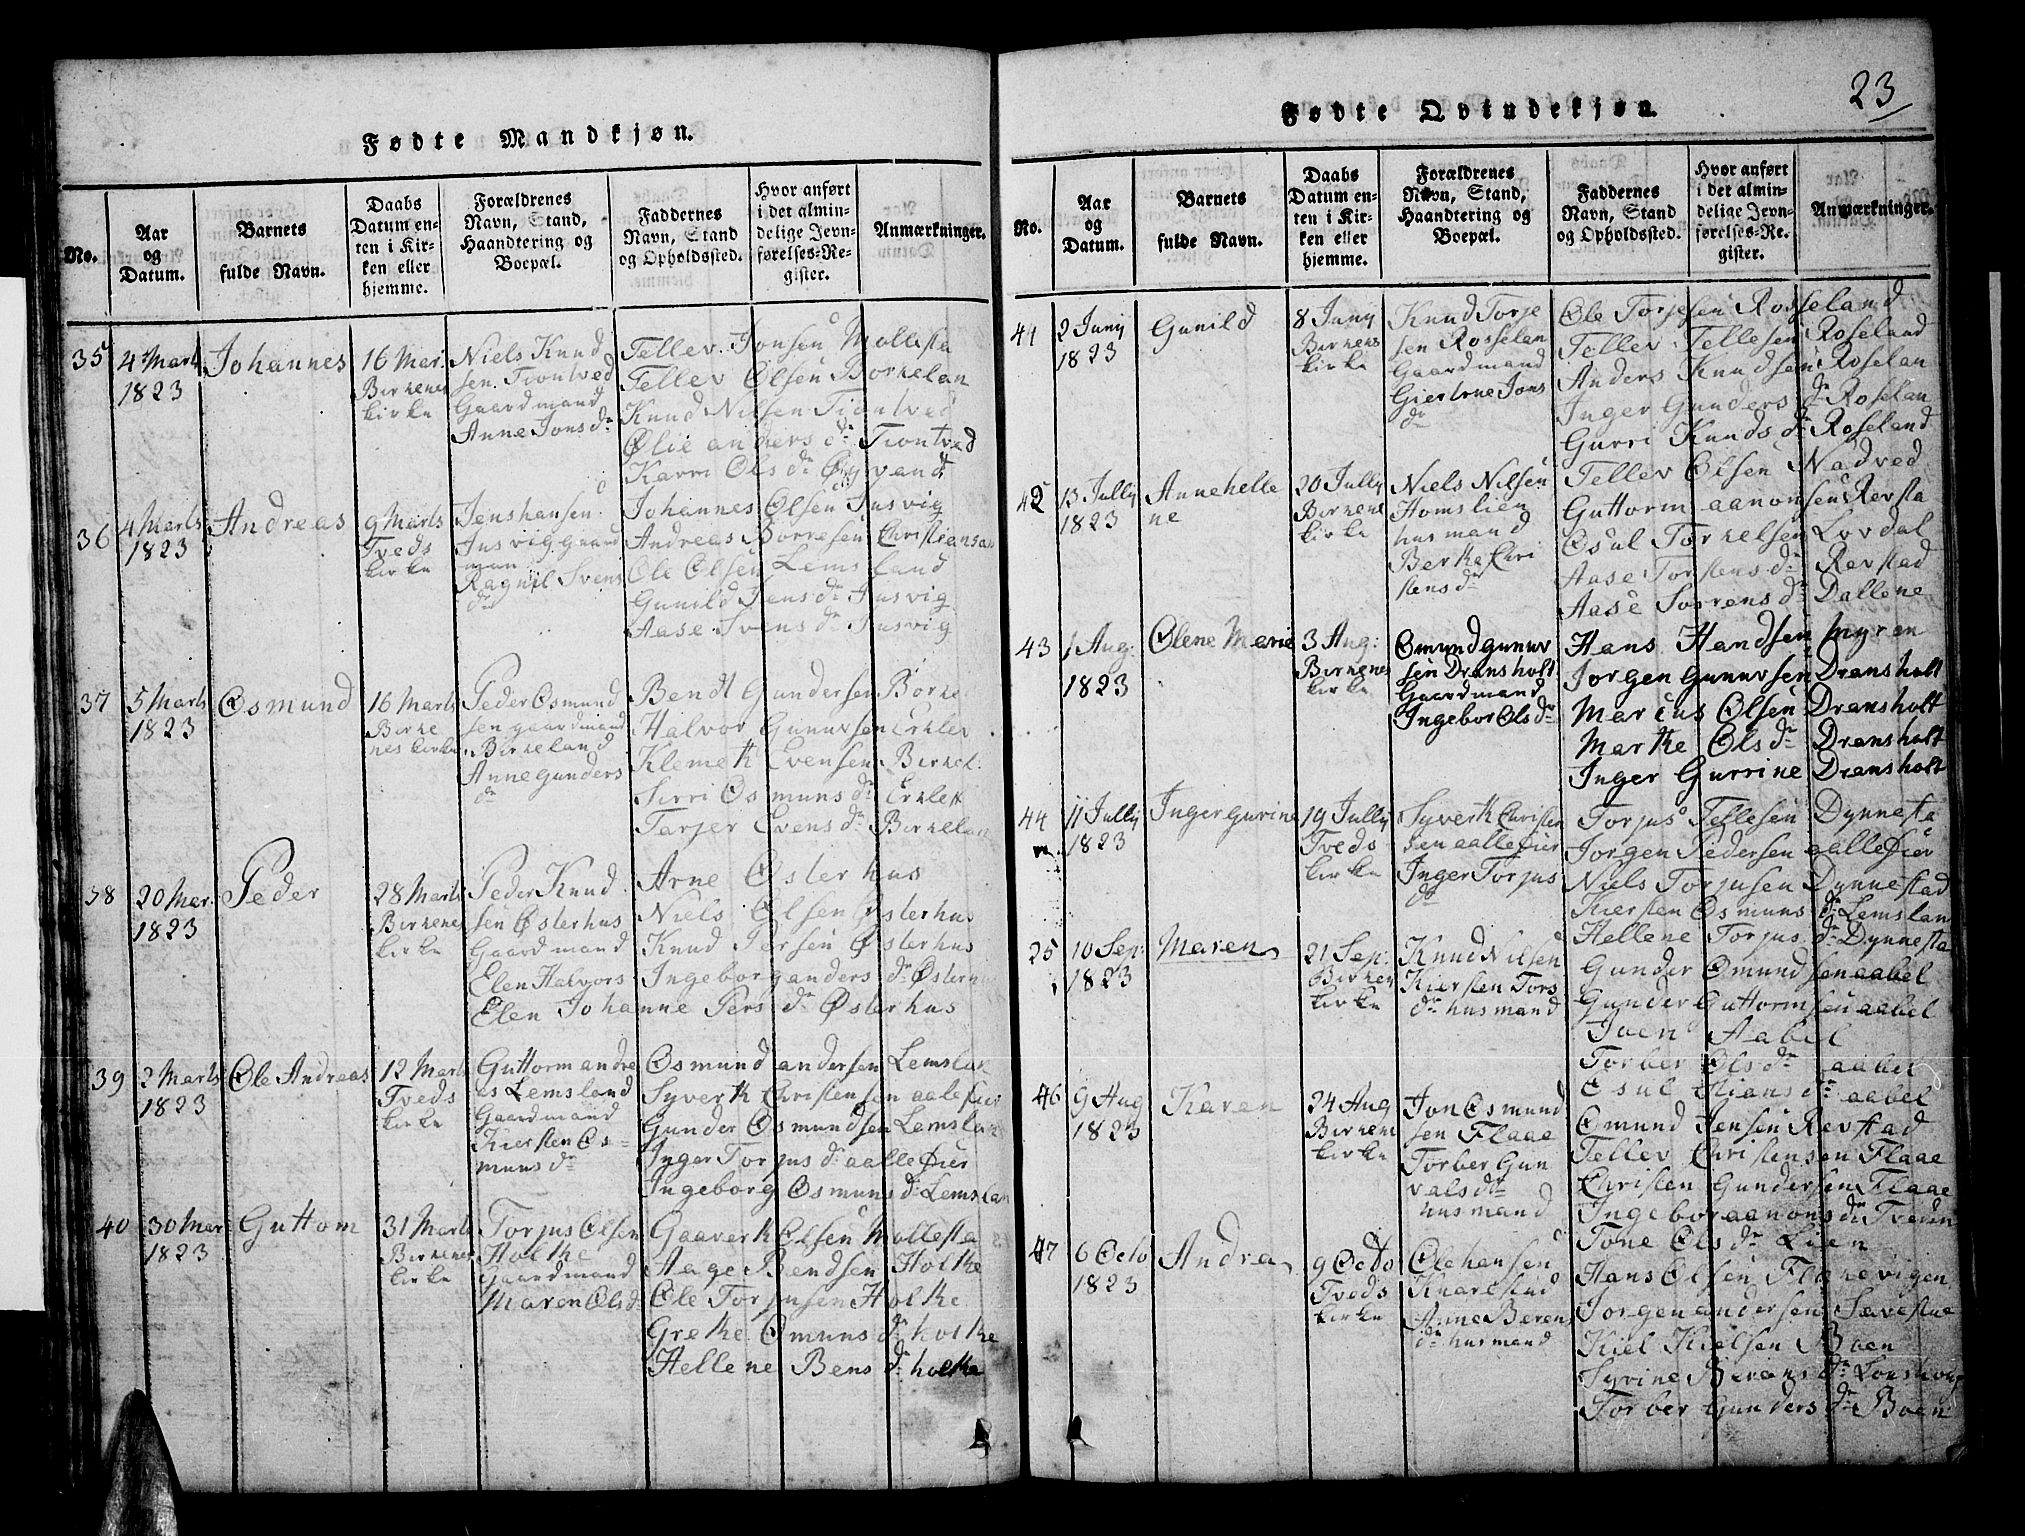 Fødte Mandkjøn.
No.
Aar
og
Datum.
Barnets
fulde Navn.
Daabs
Datum en-
ten i Kir-
ken eller
hjemme.
Forældrenes
Navn, Stand,
Haandtering og
Boepæl.
Faddernes
Navn, Stand
og Opholdssted.
Hvor anført
i det almin-
delige Jevn-
førelses-Re-
gister.
Anmærkninger.
35
4 Marts
1823
Johannes
16 Mar
Birkenes
kirke
Niels Knud
sen Tiontved
Gaardmand
Anne Jons dr
Tellev Jonsen Mollesta
Tellev Olsen Borkelan
Knud Nilsen Tiontved
Ølie anders dr Tiontved
Karri Ols dr Øygvand
36
4 Marts
1823
Andreas
9 Marts
Tveds
kirke
Jenshansen
Jusvig gaard
man
Ragnil Svens
dr
Johannes Olsen Jusvig
Andreas Borresen Christiansan
Ole Olsen Lemsland
Gunild Jens dr Jusvig
Aase Svens dr Jusvig
37
5 Marts
1823
Osmund
16 Marts
Birke
nes kirke
Peder Osmund
sen gaardmand
Birkeland
Anne gunders
dr
Bendt Gundersen Borke
Halvor Gunuvsen Erklev
Klemeth Evensen Birkel.
Sirri Osmuns dr Erklest
Tarjer Evens dr Birkelan
38
20 Mar.
1823
Peder
28 Marts
Birkenes
kirke
Peder Knud
sen Østerhus
Gaardmand
Elen Halvors
Arne Østerhus
Niels Olsen Østerhus
Knud Persen Østerhus
Ingeborg anders dr Østerhus
Elen Johanne Pers dr Østerhus
39
2 Marts
1823
Ole Andreas
12 Marts
Tveds
kirke
Guttorm andre
as Lemsland
Gaardmand
Kiersten Os-
muns dr
Osmund andersen Lemslan
Syverth Christensen aalefier
Gunder Osmundsen Lemslan
Inger Torjus dr aallefier
Ingeborg Osmuns dr Lemslan
40
30 Mar
1823
Guttom
31 Marts
Birkenes
kirke
Torjus Olsen
Holthe
Gaardmand
Maren Olsd
Gaaverth Olsen Mollesta
Aage Bendsen Holthe
Ole Torjusen Holthe
Grethe Omuns dr holthe
Hellene Bens dr holthe
23
Fødte Qvindekjøn.
No.
Aar
og
Datum.
Barnets
fulde Navn.
Daabs
Datum en-
ten i Kir-
ken eller
hjemme.
Forældrenes
Navn, Stand,
Haandtering og
Boepæl.
Faddernes
Navn, Stand
og Opholdssted.
Hvor anført
i det almin-
delige Jevn-
førelses-Re-
gister.
Anmærkninger.
41
2 Juny
1823
Gunild
8 Juny
Birkenes
kirke
Knud Torje
sen Rosselan
Gaardmand
Giertrue Jons
dr
Ole Torjesen Rosseland
Tellev Tellesen Roseland
Anders Knudsen Roselan
Inger Gunders dr Roselan
Gurri Knuds dr Roseland
42
13 Jully
1823
Annehelle
ne
20 Jully
Birkenes
kirke
Niels Nilsen
Homslien
husmand
Berthe Chri
stens dr
Tellev Olsen Nadved
Guttorm aanonsen Revsta
Osul Torkelsen Lovdal
Aase Torstens dr Revstad
Aase Sorrens dr Dallene
43
1 Aug.
1823
Olene Marie
3 Aug:
Birkenes
kirke
Omund gunuv
sen Dransholt
Gaardmand
Ingebor Ols dr
Hans Handsen Myren
Jorgen gunuvsen Dransholt
Marcus Olsen Dransholt
Marthe Ols dr Dransholt
Inger Gurrine Dransholt
44
11 Jully
1823
Ingergurine
19 Jully
Tveds
kirke
Syverth Christen
sen aallefier
Inger Torjus
dr
Torjus Tellesen Dynnesta
Jorgen Pedersen aallefier
Niels Torjusen Dynnestad
Kiersten Osmuns dr Lemslan
Hellene Torjus dr Dynnesta
25
10 Sep:
1823
Maren
21 Sep.
Birkene
kirke
Knud Nilsen
Kiersten Tors
dr husmand
Gunder Omundsen aabel
Gunder Guttormsen aabel
Iven Aabel
Torber Ols dr aabel
Osul Stians dr aabel
46
9 Aug
1823
Karen
24 Aug
Birkene
kirke
Jon Osmund
sen Flaae
Torber Gun
vals dr
husmand
Omund Jensen Revstad
Tellev Christensen Flaae
Christen Gundersen Flaae
Ingebor aanons dr Tveden
Tone Ols dr Lien
47
6 Octo
1823
Andrea
9 Octo
Tveds
kirke
Olehansen
Knarlstad
Anne Berens
dr husmand
Hans Olsen Flakevigen
Jorgen andersen Sævestue
Kiel Kielsen Boen
Syvine Berens dr
Torber Gunders dr Boen